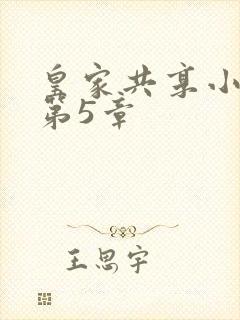 皇家共享小
第5章
王思宇